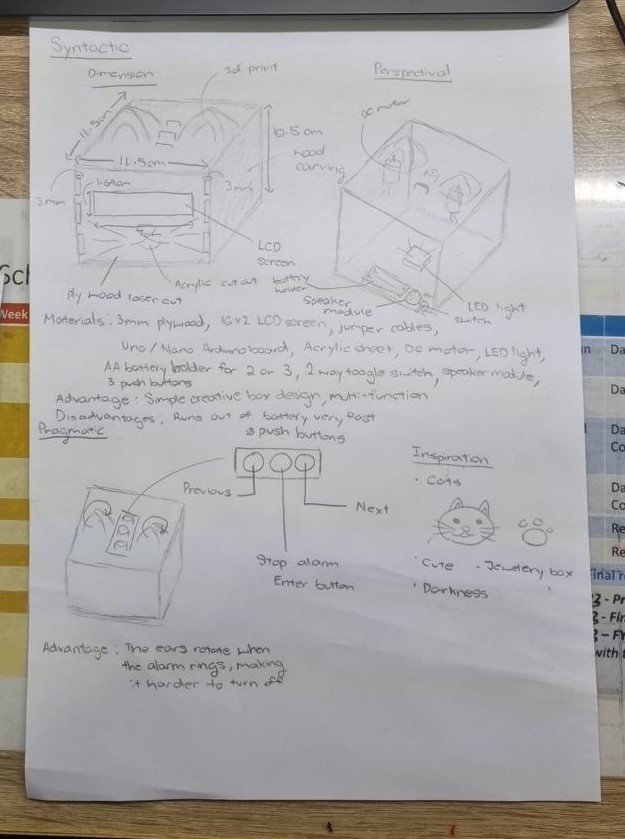 Syntactic
Dimension
3d print
Perspectival
DC motor
11.5cm
10.5cm
11.5cm
wood
carving
1.64cm
3mm
3mm
LCD
screen
Acrylic cut out
Ply wood laser cut
battery
holder
Speaker
module
LED light
switch
Materials : 3mm plywood, 16x2 LCD screen, jumper cables,
Uno / Nano Arduno board, Acrylic sheet, DC motor, LED light,
AA battery holder for 2 or 3, 2 way toogle switch, speaker module,
3 push buttons
Advantage : Simple creative box design, multi-function
Disadvantages : Runs out of battery very fast
Pragmatic
push buttons
Previous
Next
Stop alarm
Enter button
Inspiration
· Cats
· Cute
· Jewelery box
· Darkness
Advantage : The ears rotate when
the alarm rings, making
it harder to turn off
Week
Da
Da
Da
Co
Da
Co
Re
Re
with